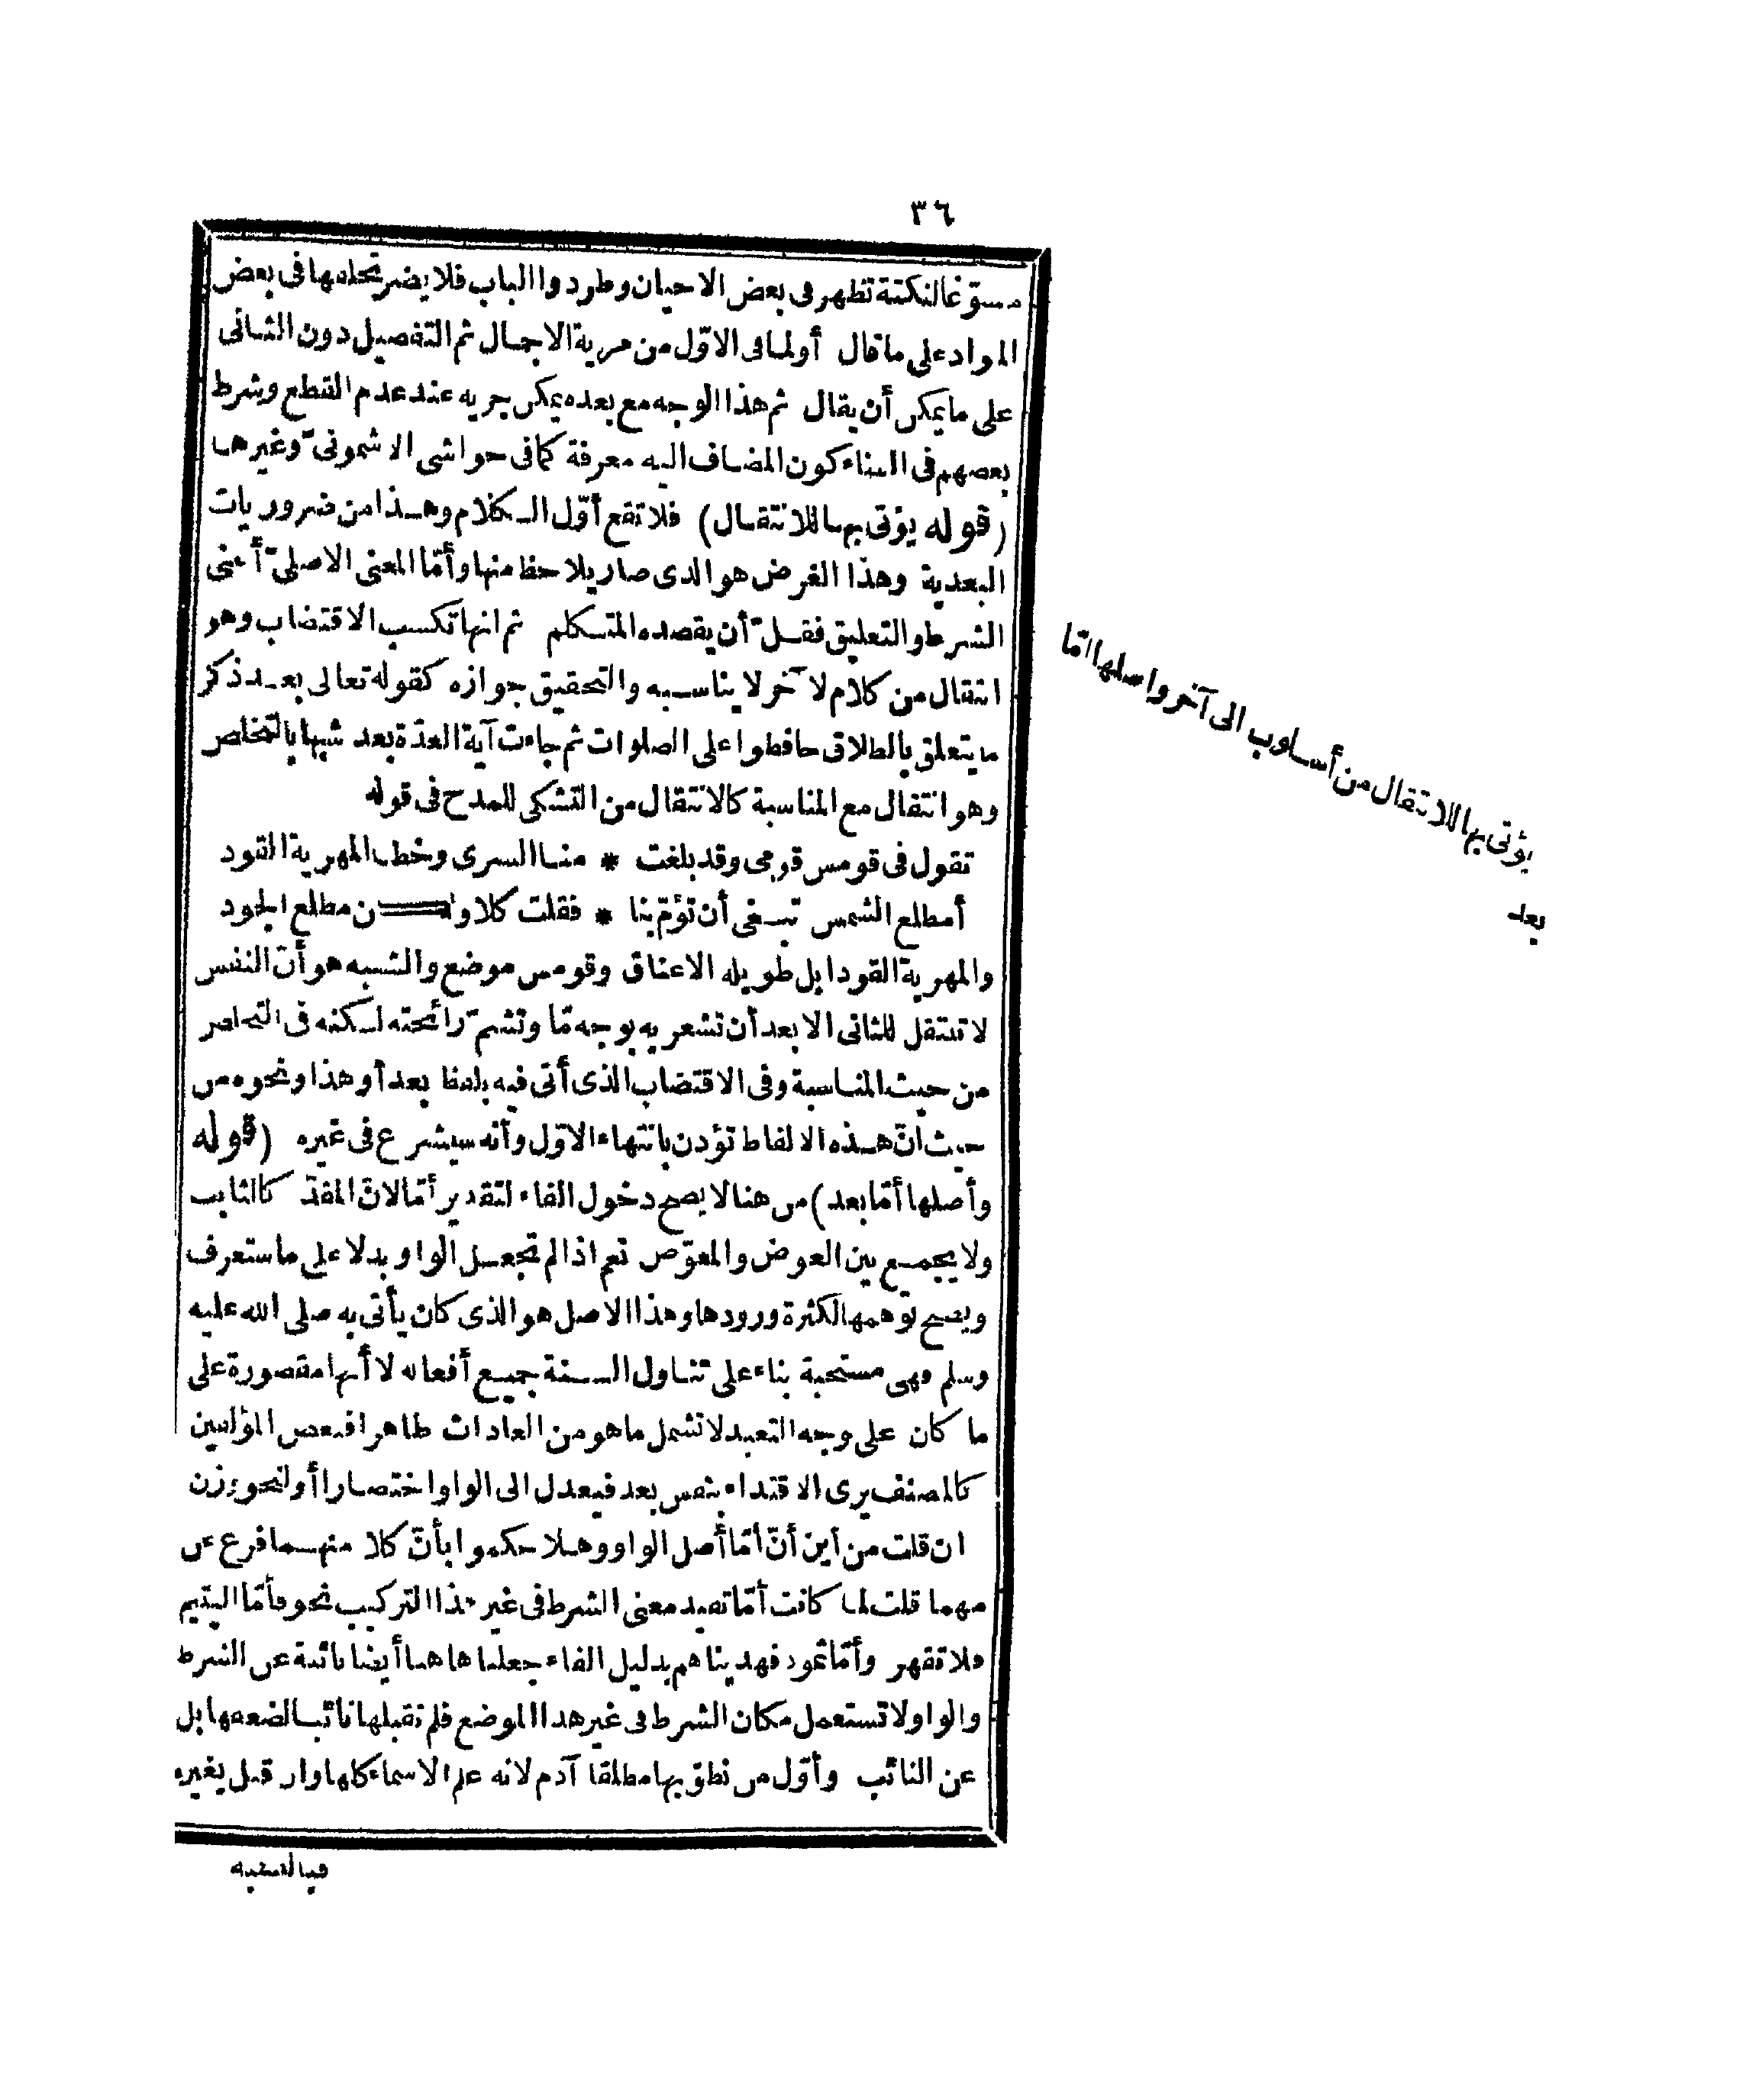 ٣٦
مسوّغا لنكتة تظهر فى بعض الاحيان وطردوا الباب فلا يضر تخلفها فى بعض
المواد على ما قال أو لما فى الاوّل من مزية الاجمال ثم التفصيل دون الثانى
على ما يمكن أن يقال ثم هذا الوجه مع بعده يمكن جريه عند عدم القطع وشرط
بعضهم فى البناء كون المضاف اليه معرفة كما فى حواشى الاشمونىّ وغيرها
(قوله يؤتى بها للانتقال) فلا تقع أوّل الكلام وهذا من ضروريات
البعدية وهذا الغرض هو الذى صار يلاحظ منها وأمّا المعنى الاصلىّ أعنى
الشرط والتعليق فقلّ أن يقصده المتكلم ثم انها تكسب الاقتضاب وهو
انتقال من كلام لآخر لا يناسبه والتحقيق جوازه كقوله تعالى بعد ذكر
ما يتعلق بالطلاق حافظوا على الصلوات ثم جاءت آية العدّة بعد شبها بالتخلص
وهو انتقال مع المناسبة كالانتقال من التشكى للمدح فى قوله
تقول فى قومس قومى وقد بلغت * منا السرى وخطا المهرية القود
أمطلع الشمس تبغى أن تؤمّ بنا * فقلت كلا ولكن مطلع الجود
والمهرية القود ابل طويله الاعناق وقومس موضع والشبه هو أنّ النفس
لا تنتقل للثانى الا بعد أن تشعر به بوجه مّا وتشمّ رائحته لكنه فى التخلص
من حيث المناسبة وفى الاقتضاب الذى أتى فيه بلفظ بعد أو هذا ونحوه من
حيث انّ هذه الالفاظ تؤذن بانتهاء الاوّل وأنه سيشرع فى غيره (قوله
وأصلها أمّا بعد) من هنا لا يصح دخول الفاء لتقدير أمّا لانّ المقدّ كالثابت
ولا يجمع بين العوض والمعوّض نعم اذا لم تجعل الواو بدلا على ما ستعرف
ويصح توهمها لكثرة ورودها وهذا الاصل هو الذى كان يأتى به صلى الله عليه
وسلم وهى مستحبة بناء على تناول السنة جميع أفعاله لا أنها مقصورة على
ما كان على وجه التعبد لا تشمل ما هو من العادات ظاهرا فبعض المؤلفين
كالمصنف يرى الاقتداء بنفس بعد فيعدل الى الواو اختصارا أو لنحو وزن
ان قلت من أين أنّ أمّا أصل الواو وهلا حكموا بأنّ كلا منهما فرع عن
مهما قلت لما كانت أمّا تفيد معنى الشرط فى غير هذا التركيب نحو فأمّا اليتيم
فلا تقهر وأمّا ثمود فهديناهم بدليل الفاء جعلناها هنا أيضا نائبة عن الشرط
والواو لا تستعمل مكان الشرط فى غير هذا الموضع فلم نقبلها نائبا لضعفها بل
عن النائب وأوّل من نطق بها مطلقا آدم لانه علم الاسماء كلها وان قيل بغيره
فبالنسبة
يؤتى بها للانتقال من أسلوب الى آخر واصلها امّا
بعد